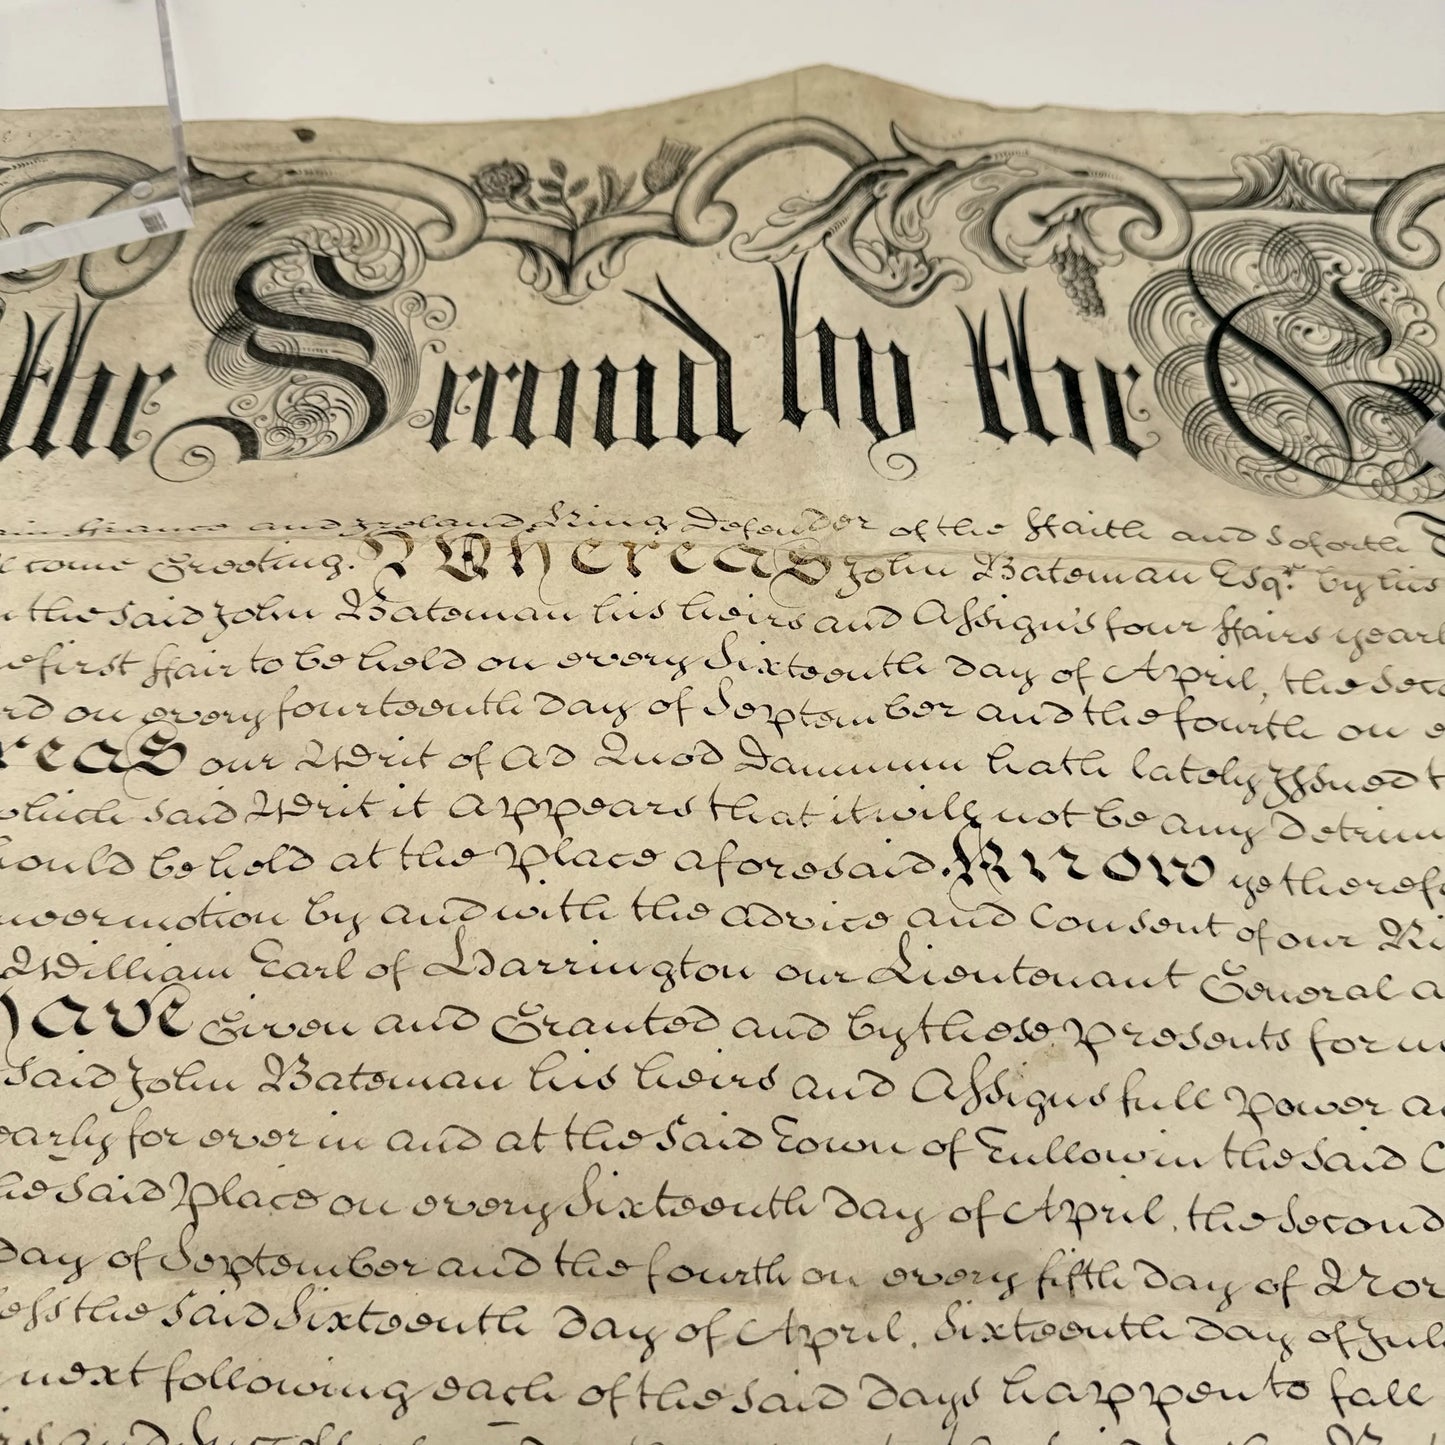 the Second by the G
France and Ireland King Defender of the Ffaith and Soforth
come Greeting. Whereas John Bateman Esqr. by his
the said John Bateman his heirs and Assigns four ffairs yearl
first ffair to be held on every Sixteenth day of April, the Seco
on every fourteenth day of September and the fourth on e
reas our Writ of Ad Quod Damnum hath lately Issued t
which said Writ it appears that it will not be any Detrim
hould be held at the Place aforesaid. Know ye therefo
mermotion by and with the advice and Consent of our Ri
William Earl of Harrington our Lieutenant General a
have Given and Granted and by these Presents for
said John Bateman his heirs and Assigns full Power a
early for ever in and at the said Town of Tullow in the said C
he said Place on every Sixteenth day of April, the second
day of September and the fourth on every fifth day of Nov
less the said Sixteenth day of April, Sixteenth day of Jul
next following each of the said days happen to fall